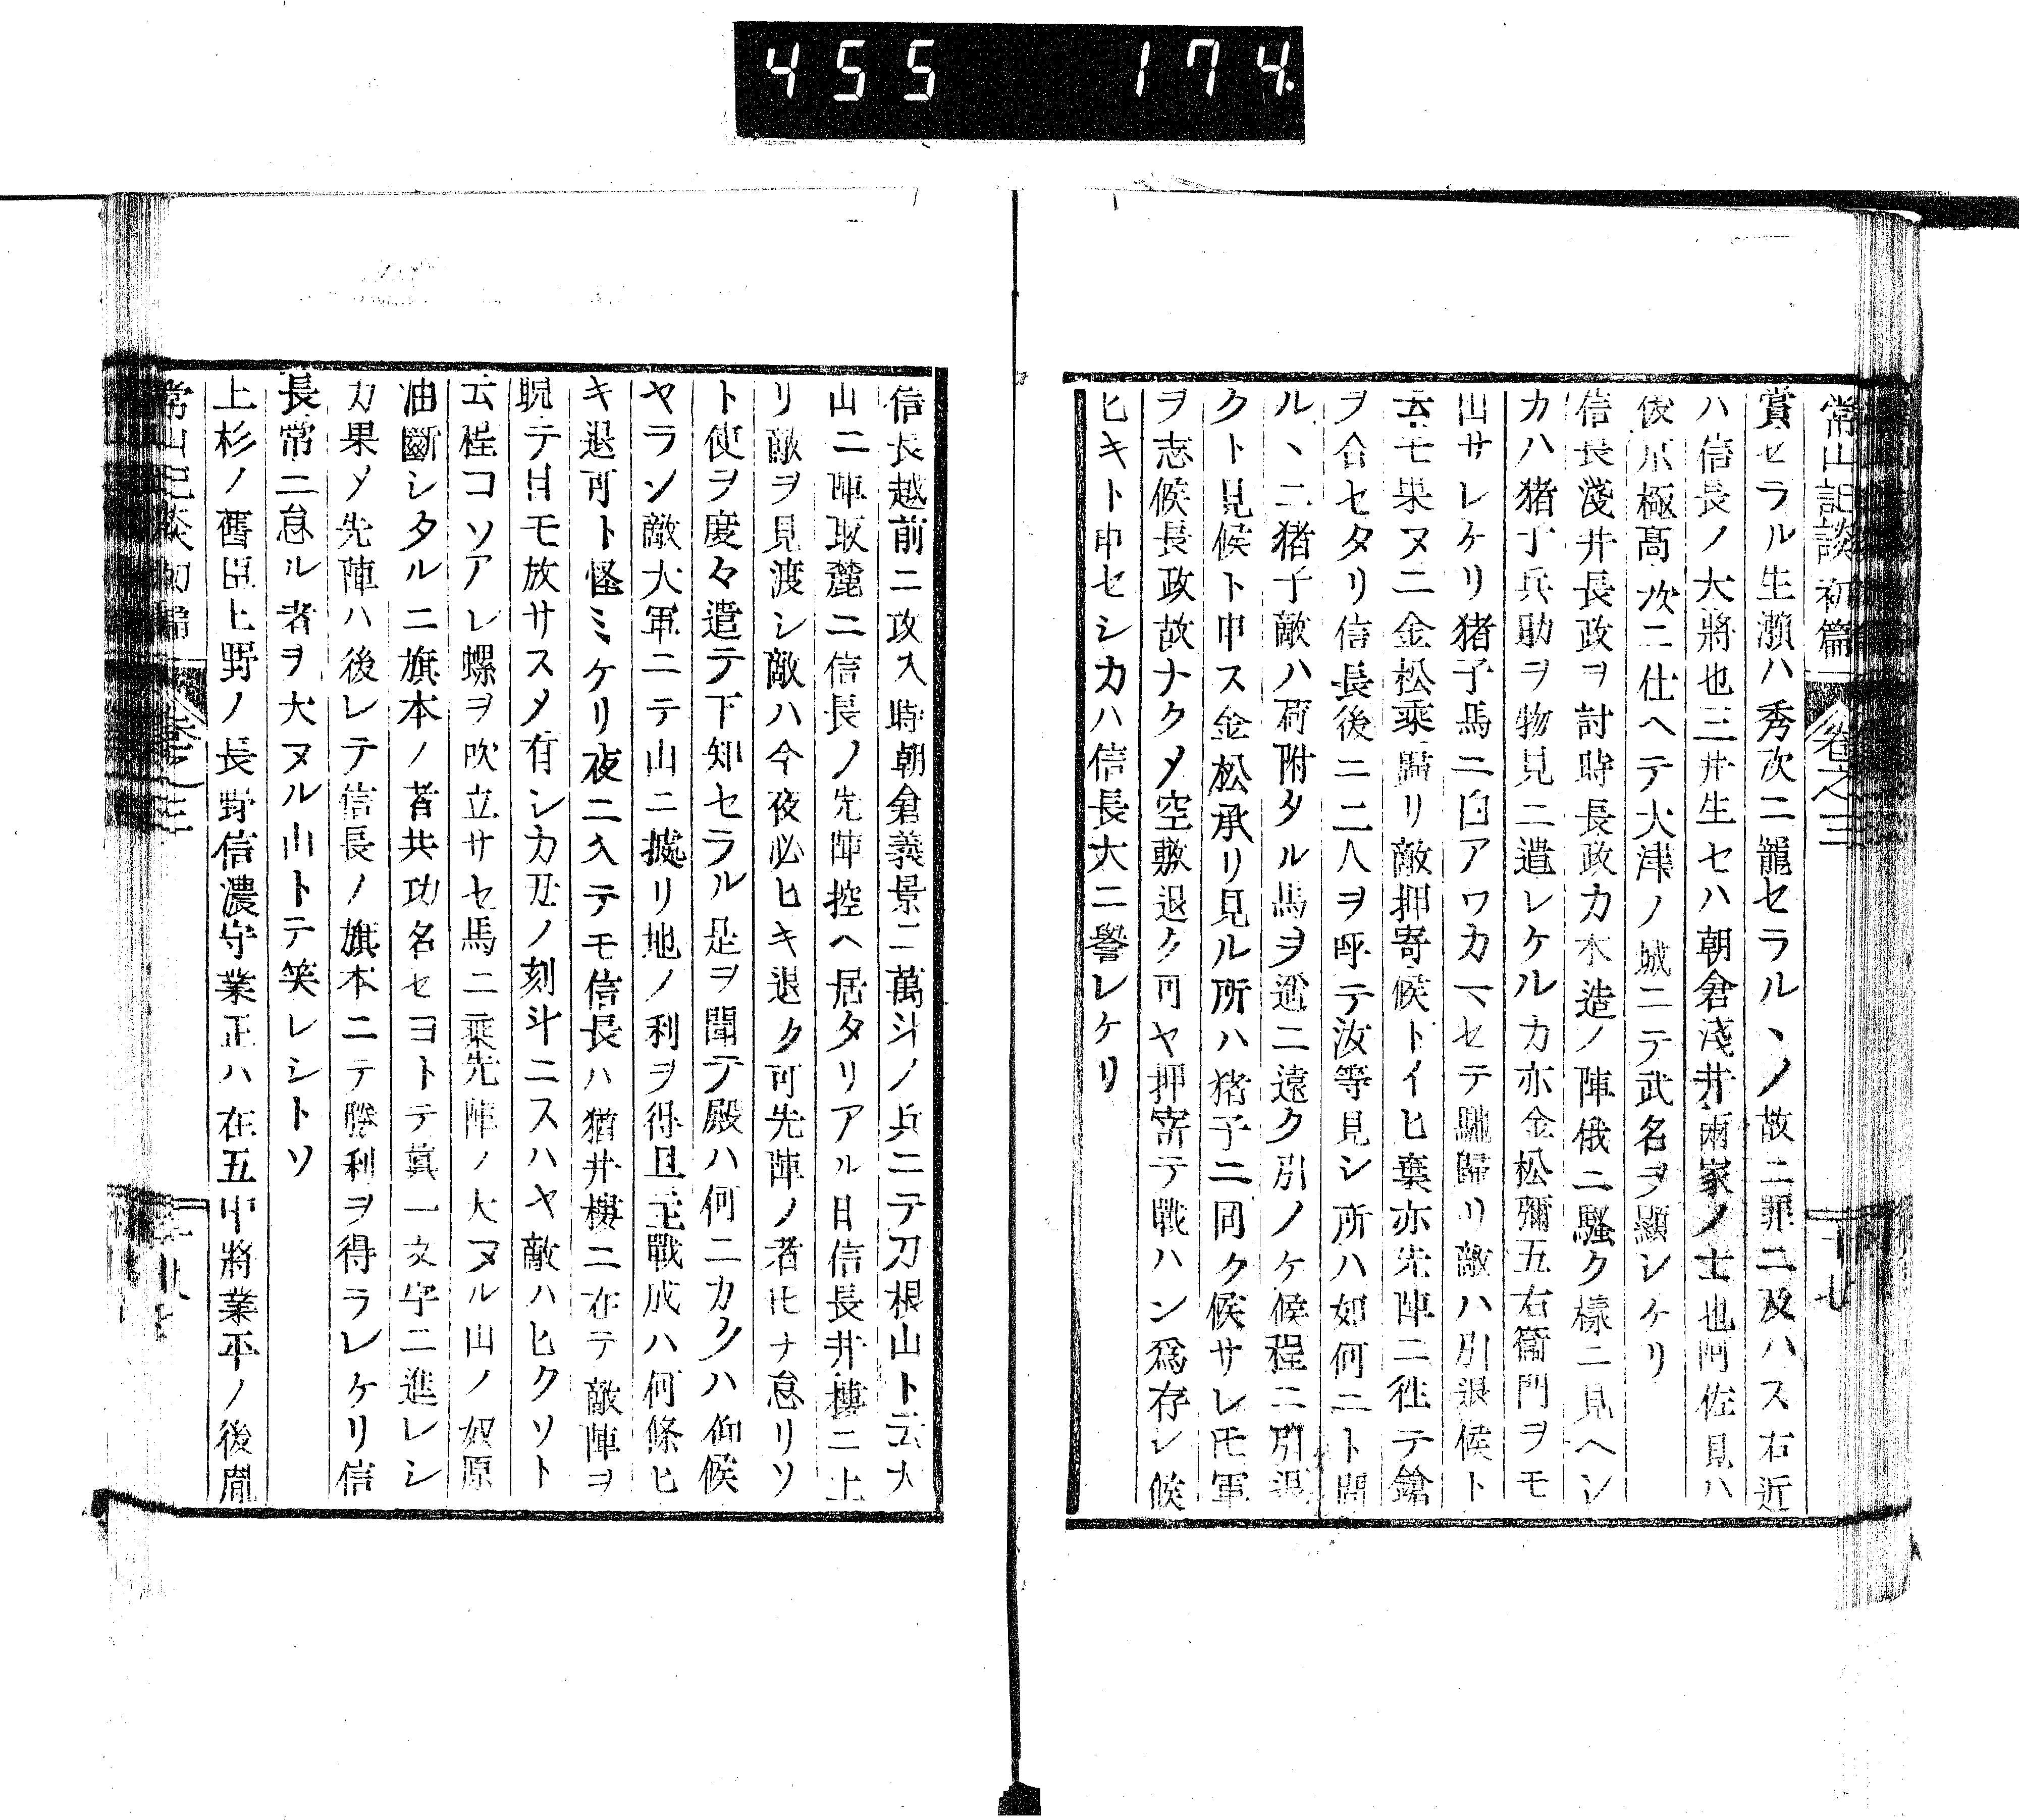 455 174
常山記談初篇 卷之三
賞セラル生瀬ハ秀次ニ寵セラルヽノ故ニ罪ニ及ハス右近
ハ信長ノ大將也三井生セハ朝倉淺井兩家ノ士也阿佐見ハ
後京極高次ニ仕ヘテ大津ノ城ニテ武名ヲ顯シケリ
信長淺井長政ヲ討時長政カ木造ノ陣俄ニ騷ク樣ニ見ヘシ
カハ猪子兵助ヲ物見ニ遣レケルカ亦金松彌五右衞門ヲモ
出サレケリ猪子馬ニ白アワカマセテ馳歸リ敵ハ引退候ト
云モ果ヌニ金松乘歸リ敵押寄候トイヒ棄亦先陣ニ徃テ鎗
ヲ合セタリ信長後ニ二人ヲ呼テ汝等見シ所ハ如何ニト問
ルヽニ猪子敵ハ荷附タル馬ヲ遊ニ遠ク引ノケ候程ニ引退
クト見候ト申ス金松承リ見ル所ハ猪子ニ同ク候サレ𪜈軍
ヲ志候長政故ナクメ空敷退ク可ヤ押寄テ戰ハン爲存シ候
ヒキト申セシカハ信長大ニ譽レケリ
信長越前ニ攻入時朝倉義景二萬斗ノ兵ニテ刀根山ト云大
山ニ陣取麓ニ信長ノ先陣控ヘ居タリアル日信長井樓ニ上
リ敵ヲ見渡シ敵ハ今夜必ヒキ退ク可先陣ノ者𪜈ナ怠リソ
ト使ヲ度々遣テ下知セラル是ヲ聞テ殿ハ何ニカクハ仰候
ヤラン敵大軍ニテ山ニ據リ地ノ利ヲ得且主戰成ハ何條ヒ
キ退可ト怪ミケリ夜ニ入テモ信長ハ猶井樓ニ在テ敵陣ヲ
覘テ目モ放サスメ有シカ丑ノ刻斗ニスハヤ敵ハヒクソト
云程コソアレ螺ヲ吹立サセ馬ニ乘先陣ノ大ヌル山ノ奴原
油斷シタルニ旗本ノ者共功名セヨトテ眞一文字ニ進レシ
カ果メ先陣ハ後レテ信長ノ旗本ニテ勝利ヲ得ラレケリ信
長常ニ怠ル者ヲ大ヌル山トテ笑レシトソ
上杉ノ舊臣上野ノ長野信濃守業正ハ在五中將業平ノ後胤
常山記談初篇